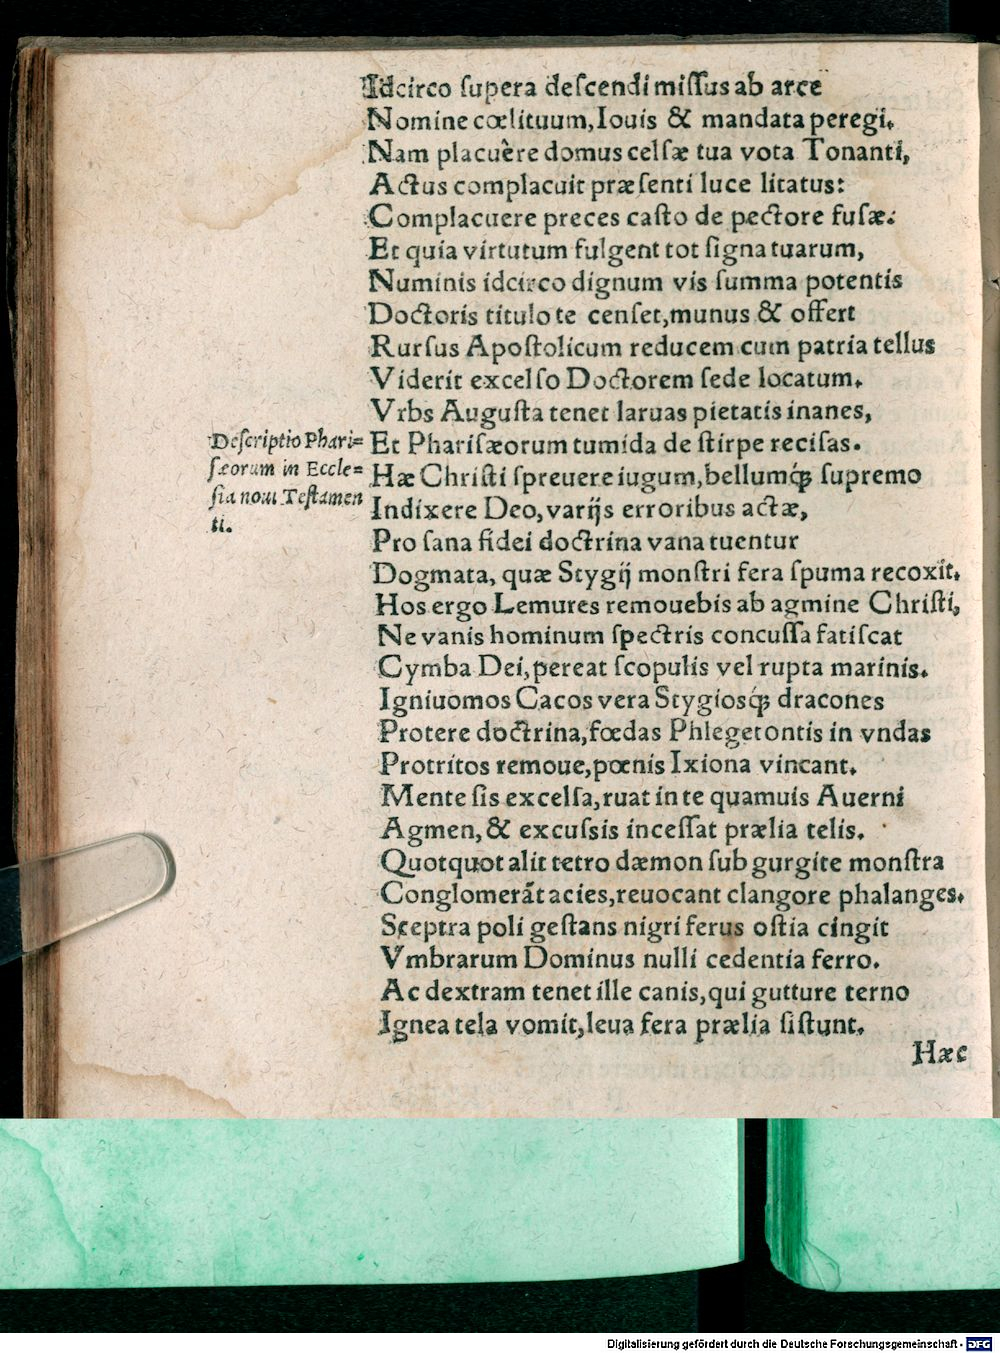 Idcirco ſupera deſcendi miſſus ab arce
Nomine cœlituum, Iouis & mandata peregi.
Nam placuêre domus celſæ tua vota Tonanti,
Actus complacuit præſenti luce litatus:
Complacuere preces caſto de pectore fuſæ:
Et quia virtutum fulgent tot ſigna tuarum,
Numinis idcirco dignum vis ſumma potentis
Doctoris titulo te cenſet, munus & offert
Rurſus Apoſtolicum reducem cum patria tellus
Viderit excelſo Doctorem ſede locatum.
Vrbs Auguſta tenet laruas pietatis inanes,
Deſcriptio Phari=
ſæorum in Eccle=
ſia noui Teſtamen
ti.
Et Phariſæorum tumida de ſtirpe reciſas.
Hæ Chriſti ſpreuere iugum, bellumq́; ſupremo
Indixere Deo, varijs erroribus actæ,
Pro ſana fidei doctrina vana tuentur
Dogmata, quæ Stygij monſtri fera ſpuma recoxit.
Hos ergo Lemures remouebis ab agmine Chriſti,
Ne vanis hominum ſpectris concuſſa fatiſcat
Cymba Dei, pereat ſcopulis vel rupta marinis.
Igniuomos Cacos vera Stygiosq́; dracones
Protere doctrina, fœdas Phlegetontis in vndas
Protritos remoue, pœnis Ixiona vincant.
Mente ſis excelſa, ruat in te quamuis Auerni
Agmen, & excuſsis inceſſat prælia telis.
Quotquot alit tetro dæmon ſub gurgite monſtra
Conglomerãt acies, reuocant clangore phalanges.
Sceptra poli geſtans nigri ferus oſtia cingit
Vmbrarum Dominus nulli cedentia ferro.
Ac dextram tenet ille canis, qui gutture terno
Ignea tela vomit, leua fera prælia ſiſtunt.
Hæc
Digitalisierung gefördert durch die Deutsche Forschungsgemeinschaft - DFG